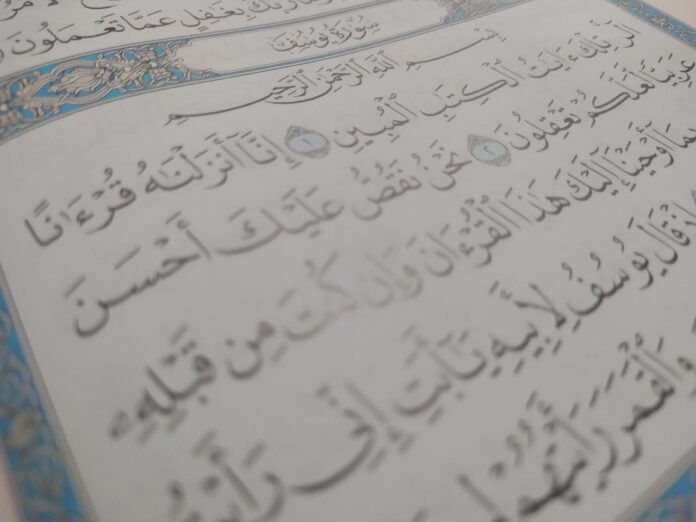 رَبُّكَ بِغَٰفِلٍ عَمَّا تَعْمَلُونَ
سُورَةُ يُوسُفَ
بِسْمِ ٱللَّهِ ٱلرَّحْمَٰنِ ٱلرَّحِيمِ
الٓر تِلْكَ ءَايَٰتُ ٱلْكِتَٰبِ ٱلْمُبِينِ ١ إِنَّآ أَنزَلْنَٰهُ قُرْءَٰنًا
عَرَبِيًّا لَّعَلَّكُمْ تَعْقِلُونَ ٢ نَحْنُ نَقُصُّ عَلَيْكَ أَحْسَنَ
بِمَآ أَوْحَيْنَآ إِلَيْكَ هَٰذَا ٱلْقُرْءَانَ وَإِن كُنتَ مِن قَبْلِهِۦ
إِذْ قَالَ يُوسُفُ لِأَبِيهِ يَٰٓأَبَتِ إِنِّى رَأَيْتُ
وَٱلْقَمَرَ رَأَيْتُهُمْ